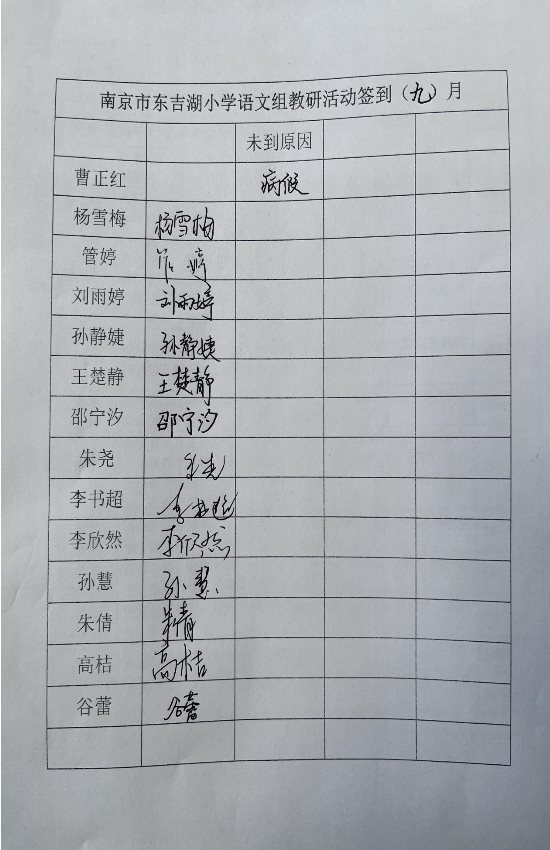 南京市东吉湖小学语文组教研活动签到（九）月
未到原因
曹正红 病假
杨雪梅 杨雪梅
管婷 管婷
刘雨婷 刘雨婷
孙静婕 孙静婕
王楚静 王楚静
邵宁汐 邵宁汐
朱尧 朱尧
李书超 李书超
李欣然 李欣然
孙慧 孙慧
朱倩 朱倩
高桔 高桔
谷蕾 谷蕾